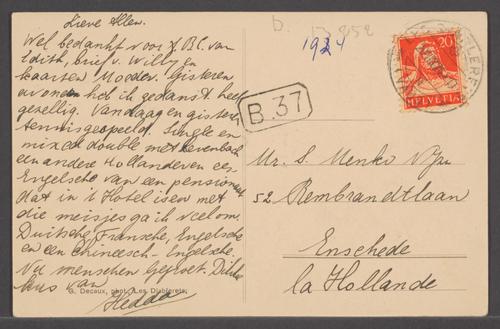 Lieve Allen.
Wel bedankt voor f. B.C. van
Edith, brief v. Willy en
kaarten Moeder. Gisteren
avond heb ik gedanst heel
gezellig. Vandaag en gisteren
tennisgespeeld. Single en
mixed double met
een andere Hollander en een
Engelsche van een pension
dat in 't Hotel is en met
die meisjes ga ik veel om.
Duitsche, Fransche, Engelsche
en een Chineesch-Engelsche.
Nu menschen gegroet. Dikke
kus van
Hedda
G. Decaux, phot., Les Diablerets
b.
1924
B.37
20
HELVETIA
Mr. S. Menko
52 Rembrandtlaan
Enschede
la Hollande